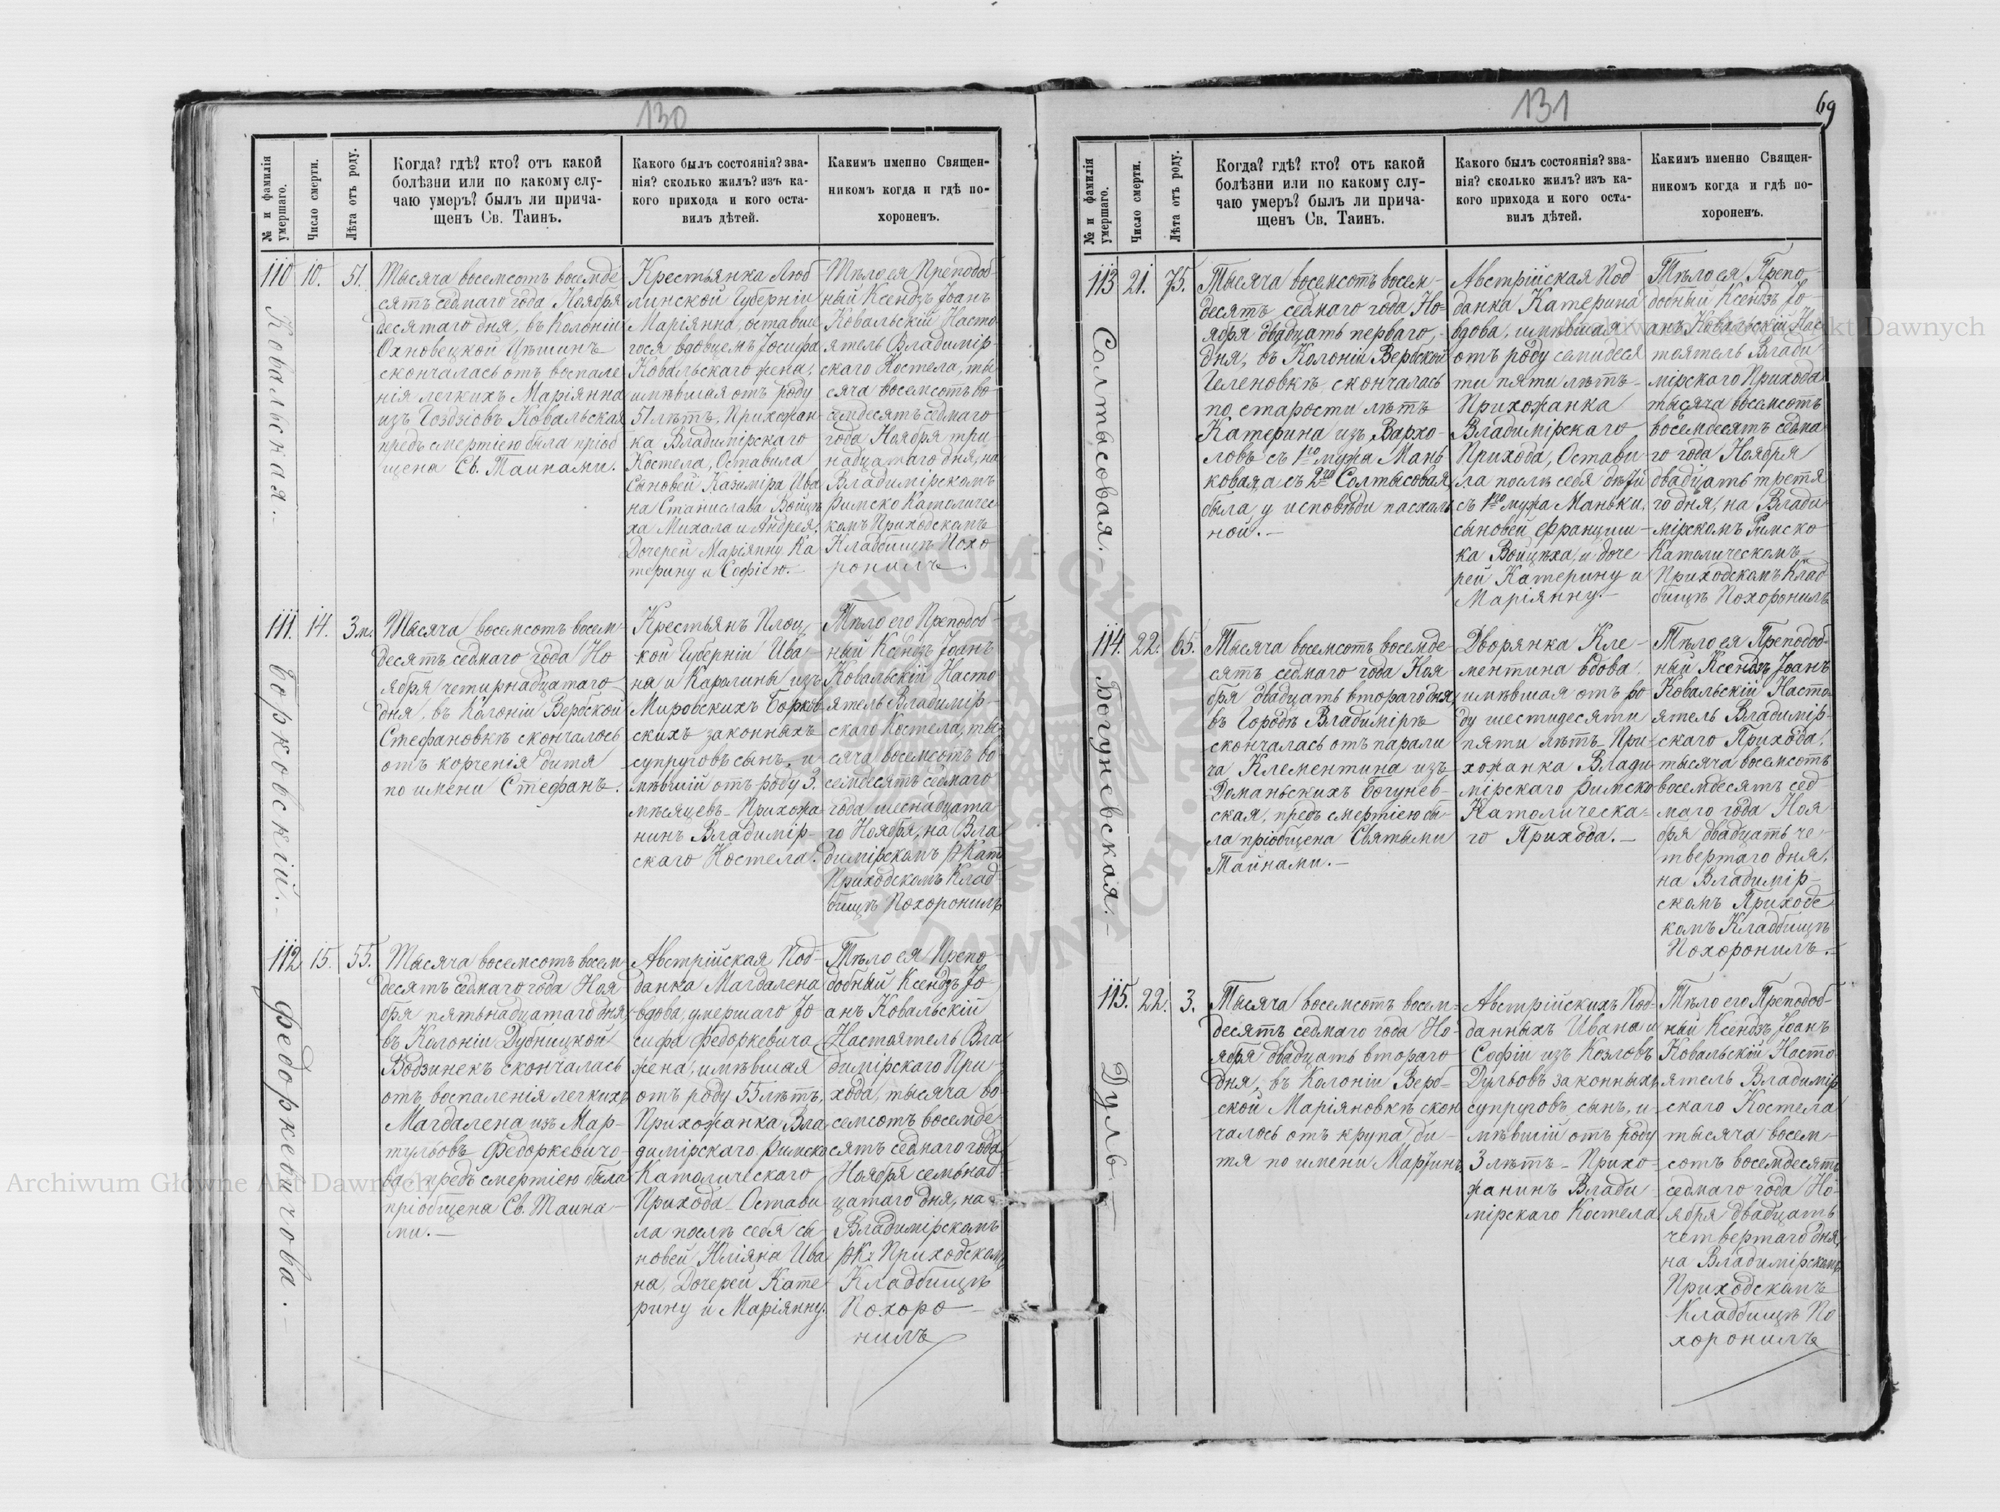 130
№ и фамилія умершаго.
Число смерти.
Лѣта отъ роду.
Когда? гдѣ? кто? отъ какой
болѣзни или по какому слу-
чаю умеръ? былъ ли прича-
щенъ Св. Таинъ.
Какого былъ состоянія? зва-
нія? сколько жилъ? изъ ка-
кого прихода и кого оста-
вилъ дѣтей.
Какимъ именно Священ-
никомъ когда и гдѣ по-
хороненъ.
110
Ковальская.
10.
51.
Тысяча восемсотъ восемде
сятъ седмаго года Ноября
десятаго дня, въ Колоніи
Охновецкой Цѣшинъ
скончалась отъ воспале
нія легкихъ Маріянна
изъ Гоздзіовъ Ковальская
предъ смертію была пріоб
щена Св. Таинами.
Крестьянка Люб
линской Губерніи
Маріянна, оставше
гося вдовцемъ Іосифа
Ковальскаго жена,
имѣвшая отъ роду
51 лѣтъ, Прихожан
ка Владимірскаго
Костела, Оставила
Сыновей Казиміра Ива
на Станислава Войцѣ
ха Михала и Андрея.
Дочерей Маріянну Ка
терину и Софію.
Тѣло ея Преподоб
ный Ксендзъ Іоанъ
Ковальскій Насто
ятель Владимір-
скаго Костела, ты
сяча восемсотъ во
семдесятъ седмаго
года Ноября три
надцатаго дня, на
Владимірскомъ
Римско Католичес
комъ Приходскомъ
Кладбищѣ Похо
ронилъ
111.
Борковскій.
14.
3 м.
Тысяча восемсотъ восем
десятъ седмаго года Но
ября четырнадцатаго
дня, въ Колоніи Вербской
Стефановкѣ скончалось
отъ корченія дитя
по имени Стефанъ.
Крестьянъ Плоц
кой Губерніи Ива
на и Каролины изъ
Мировскихъ Борков
скихъ законныхъ
супруговъ сынъ, и
мѣвшій отъ роду 3.
мѣсяцевъ - Прихожа
нинъ Владимір-
скаго Костела.
Тѣло его Преподоб-
ный Ксендзъ Іоанъ
Ковальскій Насто
ятель Владимір-
скаго Костела, ты-
сяча восемсотъ во
семдесятъ седмаго
года шеснадцата
го Ноября, на Вла
димірскомъ Р. Кат.
Приходскомъ Клад-
бищѣ Похоронилъ
112
Федоркевичова.
15.
55.
Тысяча восемсотъ восем
десятъ седмаго года Ноя
бря пятьнадцатаго дня
въ Колоніи Дубницкой
Водзинекъ скончалась
отъ воспаленія легкихъ
Магдалена изъ Мар-
тульовъ Федоркевичо-
ва, предъ смертію была
пріобщена Св. Таина-
ми.
Австрійская Под-
данка Магдалена
вдова, умершаго Іо
сифа Федоркевича
жена, имѣвшая
отъ роду 55 лѣтъ,
Прихожанка Вла
димірскаго Римско
Католическаго
Прихода - Остави
ла послѣ себя сы
новей Юліяна Ива
на, Дочерей Кате
рину и Маріянну.
Тѣло ея Препо-
добный Ксендзъ Іо
анъ Ковальскій
Настоятель Вла
димірскаго При
хода, тысяча во
семсотъ восемде
сятъ седмаго года
Ноября семьнад-
цатаго дня, на
Владимірскомъ
Р.К. Приходскомъ
Кладбищѣ
Похоро
нилъ
131
69
№ и фамилія умершаго.
Число смерти.
Лѣта отъ роду.
Когда? гдѣ? кто? отъ какой
болѣзни или по какому слу-
чаю умеръ? былъ ли прича-
щенъ Св. Таинъ.
Какого былъ состоянія? зва-
нія? сколько жилъ? изъ ка-
кого прихода и кого оста-
вилъ дѣтей.
Какимъ именно Священ-
никомъ когда и гдѣ по-
хороненъ.
113
Солтысовая.
21.
75.
Тысяча восемсотъ восем-
десятъ седмаго года Но-
ября двадцать перваго,
дня, въ Колоніи Вербской
Геленовкѣ скончалась
по старости лѣтъ
Катерина изъ Вархо-
ловъ съ 1го мужа Мань
ковая, а съ 2го Солтысовая,
была у исповѣди пасхаль
ной.
Австрійская Под
данка Катерина
вдова, имѣвшая
отъ роду семидеся
ти пяти лѣтъ -
Прихожанка
Владимірскаго
Прихода, Остави
ла послѣ себя дѣтй
съ 1го мужа Маньки,
сыновей Францыш-
ка Войцѣха, и доче
рей Катерину и
Маріянну.
Тѣло ея Препо-
добный Ксендзъ Іо-
анъ Ковальскій Нас
тоятель Влади
мірскаго Прихода
тысяча восемсотъ
восемдесятъ седма
го года Ноября
двадцать третя
го дня, на Влади-
мірскомъ Римско-
Католическомъ
Приходскомъ Клад
бищѣ Похоронилъ
114.
Богуневская.
22.
65.
Тысяча восемсотъ восемде
сятъ седмаго года Ноя
бря двадцать втораго дня,
въ Городѣ Владимірѣ
скончалась отъ парали
ча Клементина изъ
Доманьскихъ Богунев-
ская, предъ смертію бы-
ла пріобщена Святыми
Тайнами.
Дворянка Кле-
ментина вдова,
имѣвшая отъ ро
ду шестидесяти
пяти лѣтъ - При
хожанка Влади
мірскаго Римско
Католическа-
го Прихода.
Тѣло ея Преподоб-
ный Ксендзъ Іоанъ
Ковальскій Насто
ятель Владимір-
скаго Прихода,
тысяча восемсотъ
восемдесятъ сед-
маго года Ноя
бря двадцать че-
твертаго дня,
на Владимір-
скомъ Приходс
комъ Кладбищѣ
Похоронилъ.
115.
Дуль.
22.
3.
Тысяча восемсотъ восем-
десятъ седмаго года Но-
ября двадцать втораго
дня, въ Колоніи Верб-
ской Маріяновкѣ скон
чалось отъ крупа, ди-
тя по имени Мартинъ
Австрійскихъ Под-
данныхъ Ивана и
Софіи изъ Козловъ
Дульовъ законныхъ
супруговъ, сынъ, и-
мѣвшій отъ роду
3 лѣтъ - Прихо-
жанинъ Влади-
мірскаго Костела
Тѣло его Преподоб-
ный Ксендзъ Іоанъ
Ковальскій Насто
ятель Владимір
скаго Костела
тысяча восем-
сотъ восемдесятъ
седмаго года Но-
ября двадцать
четвертаго дня,
на Владимірскомъ
Приходскомъ
Кладбищѣ По
хоронилъ
Archiwum Główne Akt Dawnych